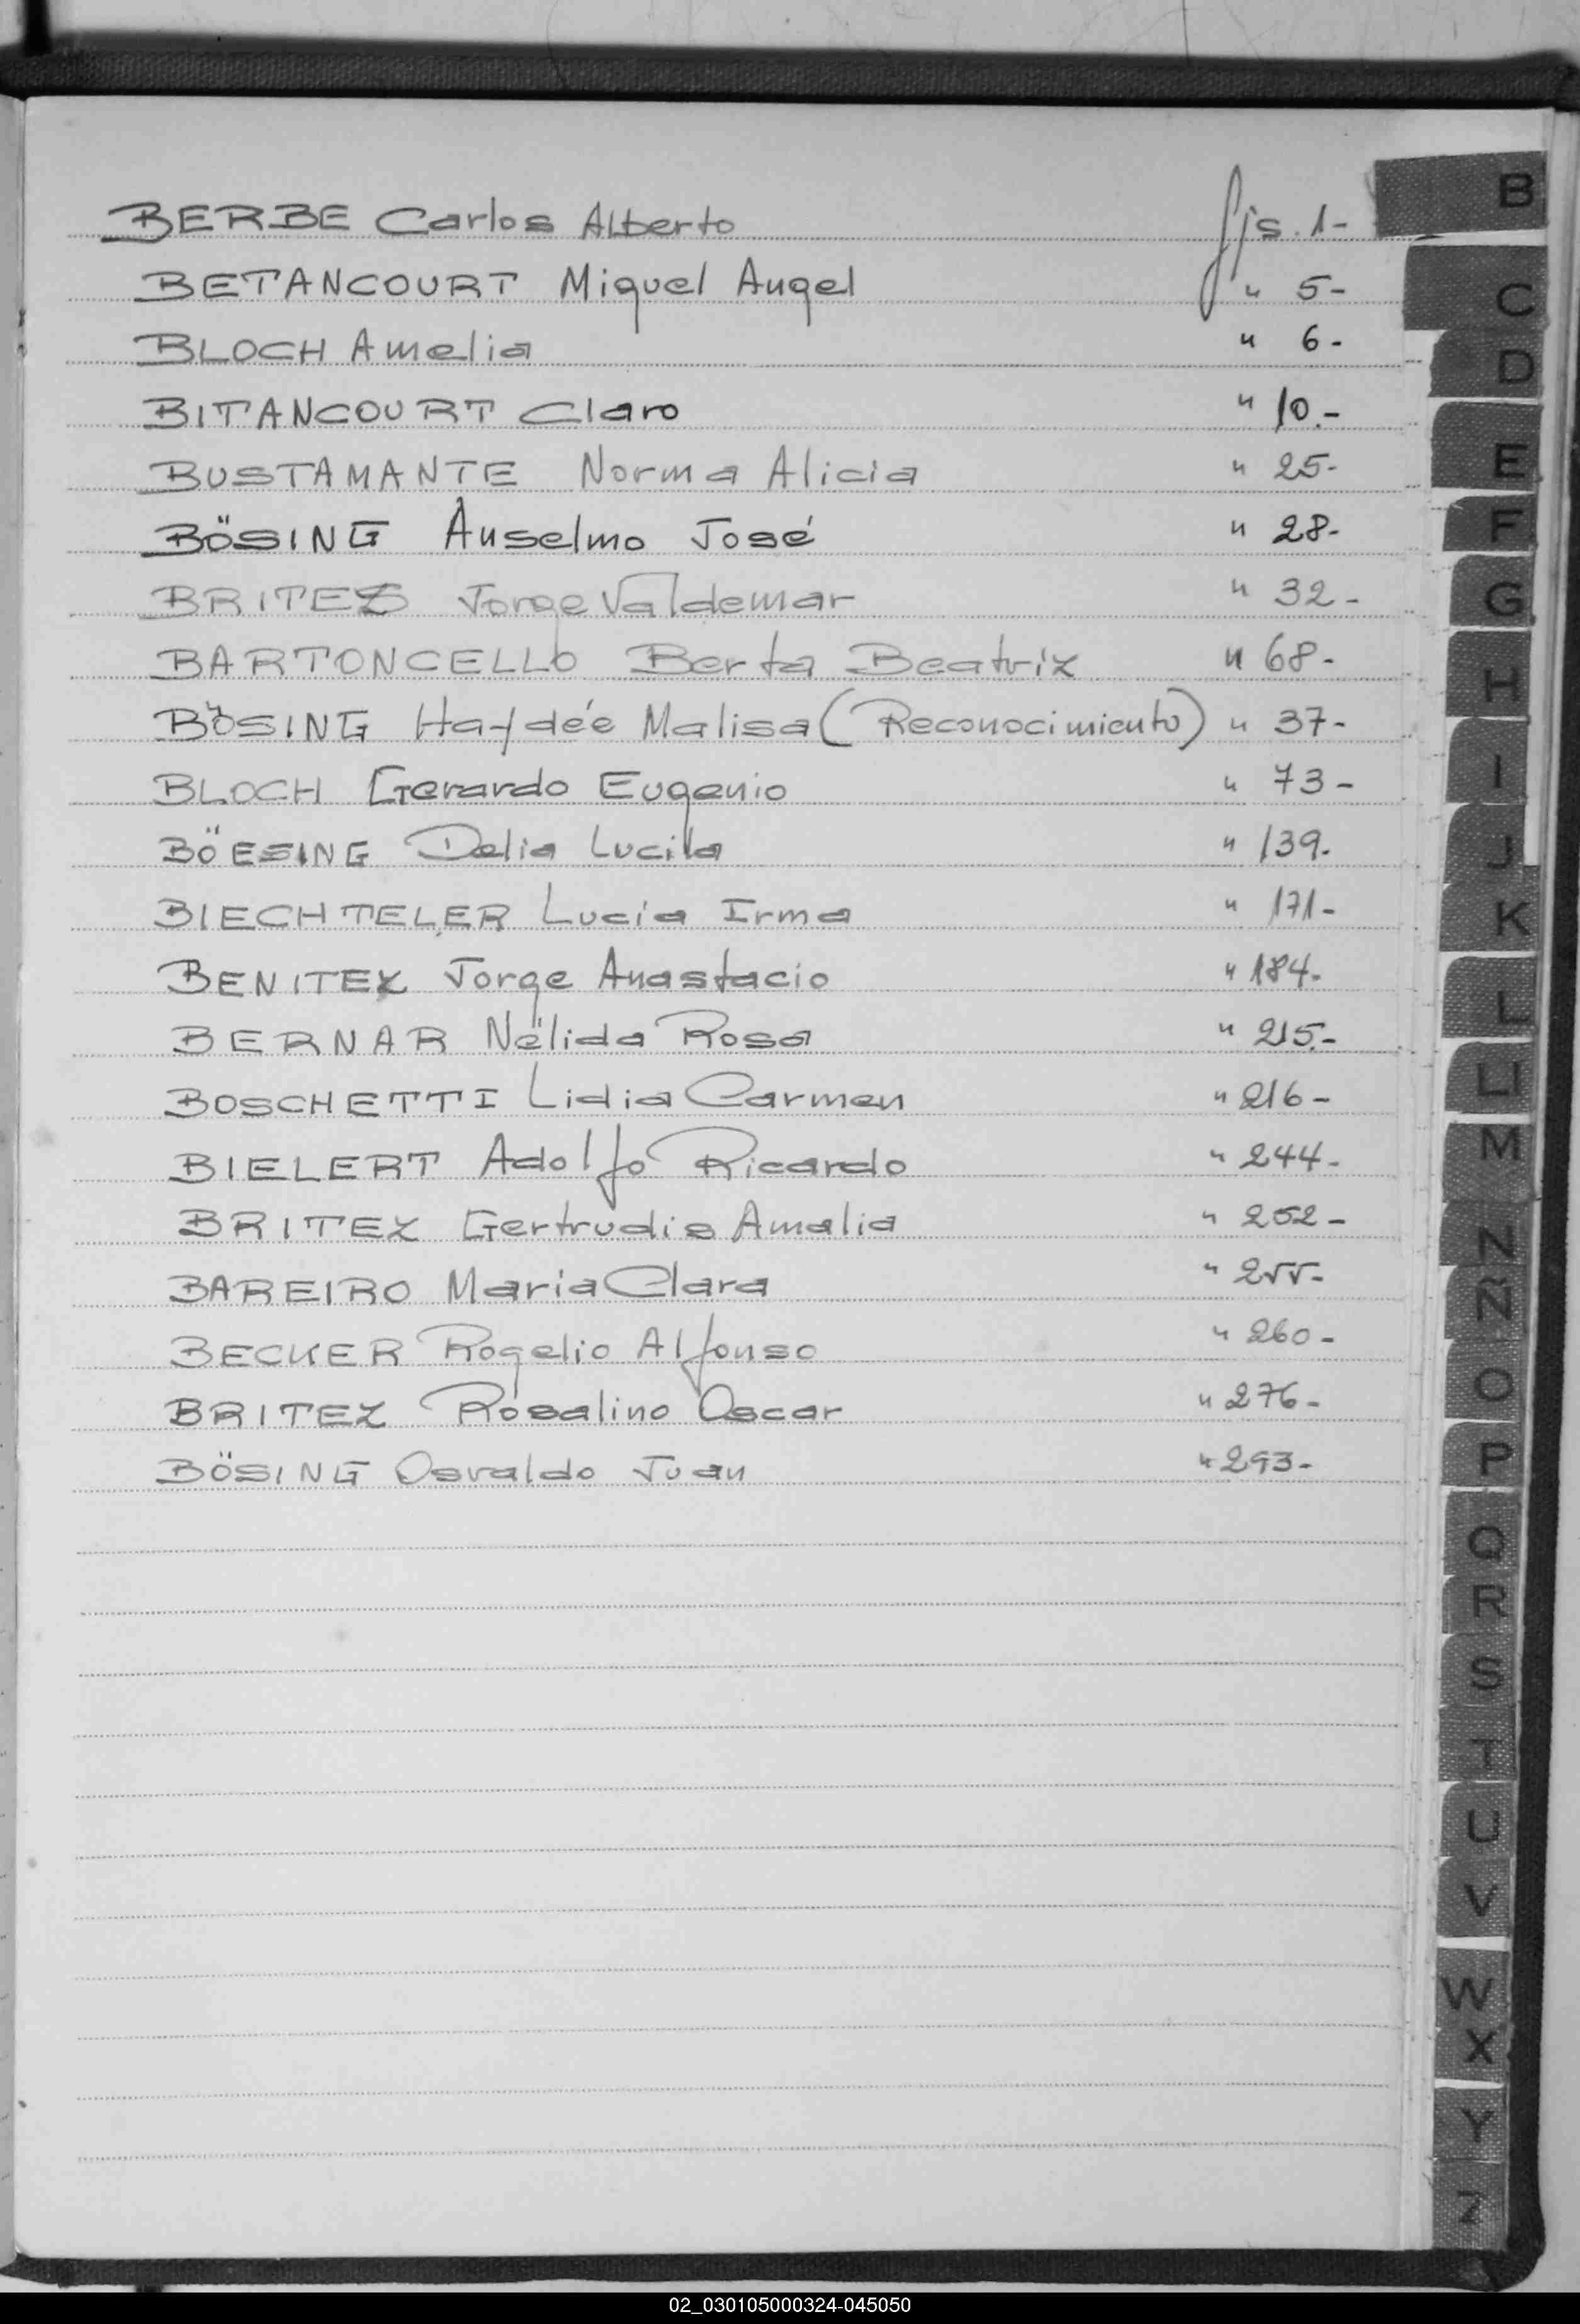 BERBE Carlos Alberto fjs. 1-
BETANCOURT Miguel Angel " 5-
BLOCH Amelia " 6-
BITANCOURT Claro " 10.-
BUSTAMANTE Norma Alicia " 25-
BÖSING Anselmo José " 28-
BRITEZ Jorge Valdemar " 32-
BARTONCELLO Berta Beatriz " 68-
BÖSING Haydée Malisa (Reconocimiento) " 37-
BLOCH Gerardo Eugenio " 73-
BÖESING Delia Lucila " 139.
BIECHTELER Lucia Irma " 171-
BENITEZ Jorge Anastacio " 184-
BERNAR Nélida Rosa " 215.-
BOSCHETTI Lidia Carmen " 216-
BIELERT Adolfo Ricardo " 244-
BRITEZ Gertrudis Amalia " 252-
BAREIRO Maria Clara " 255-
BECKER Rogelio Alfonso " 260-
BRITEZ Rosalino Oscar " 276-
BÖSING Osvaldo Juan " 293-
B
C
D
E
F
G
H
I
J
K
L
Ll
M
N
Ñ
O
P
Q
R
S
T
U
V
W
X
Y
Z
02_030105000324-045050